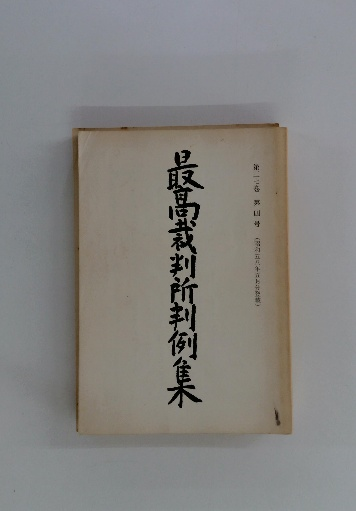 第三七巻 第四号 (昭和五八年五月分登載)
最高裁判所判例集